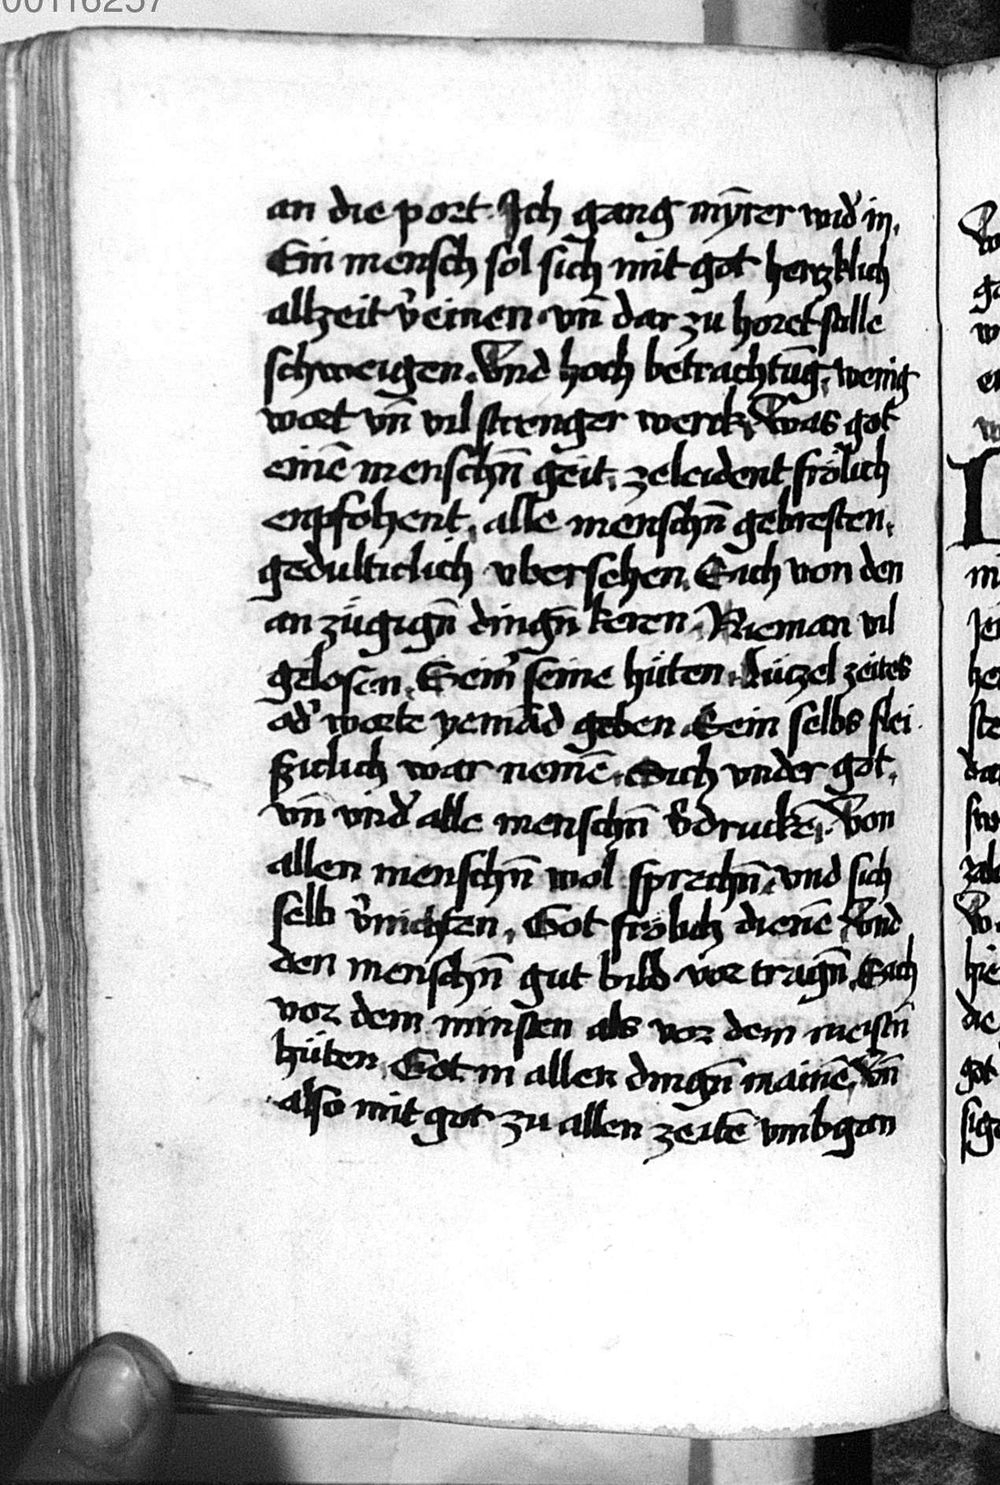 00116257
an die port. Ich gang mȳrer wid̓ in.
Ein mensch sol sich mit got hertzklich
allzeit v̓einen. vn̄ dar zu horet stille
schweigen. Vnd hoch betrachtūg, wenig
wort vn̄ vil strenger werck, Was got
einē menschn̄ geit, ze leident frölich
enpfohent, alle menschn̄ gebresten,
gedulticlich vbersehen. Sich von den
an zügign̄ dingn̄ keren. Nieman vil
gelosen. Sein̓ seine hüten. Lützel zeites
od̓ worte yemād geben. Sein selbs flei
sziclich war nemē. Sich vnder got,
vn̄ vnd̓ alle menschn̄ v̓druckē. Von
allen menschn̄ wol sprechn̄, vnd sich
selb v̓nichten, Got frölich dienē Vnd
den menschn̄ gut bild vor tragn̄. Sich
vor dem minsten als vor dem meistn̄
hüten. Got in allen dingn̄ mainē, Vn̄
also mit got zu allen zeitē vmbgan